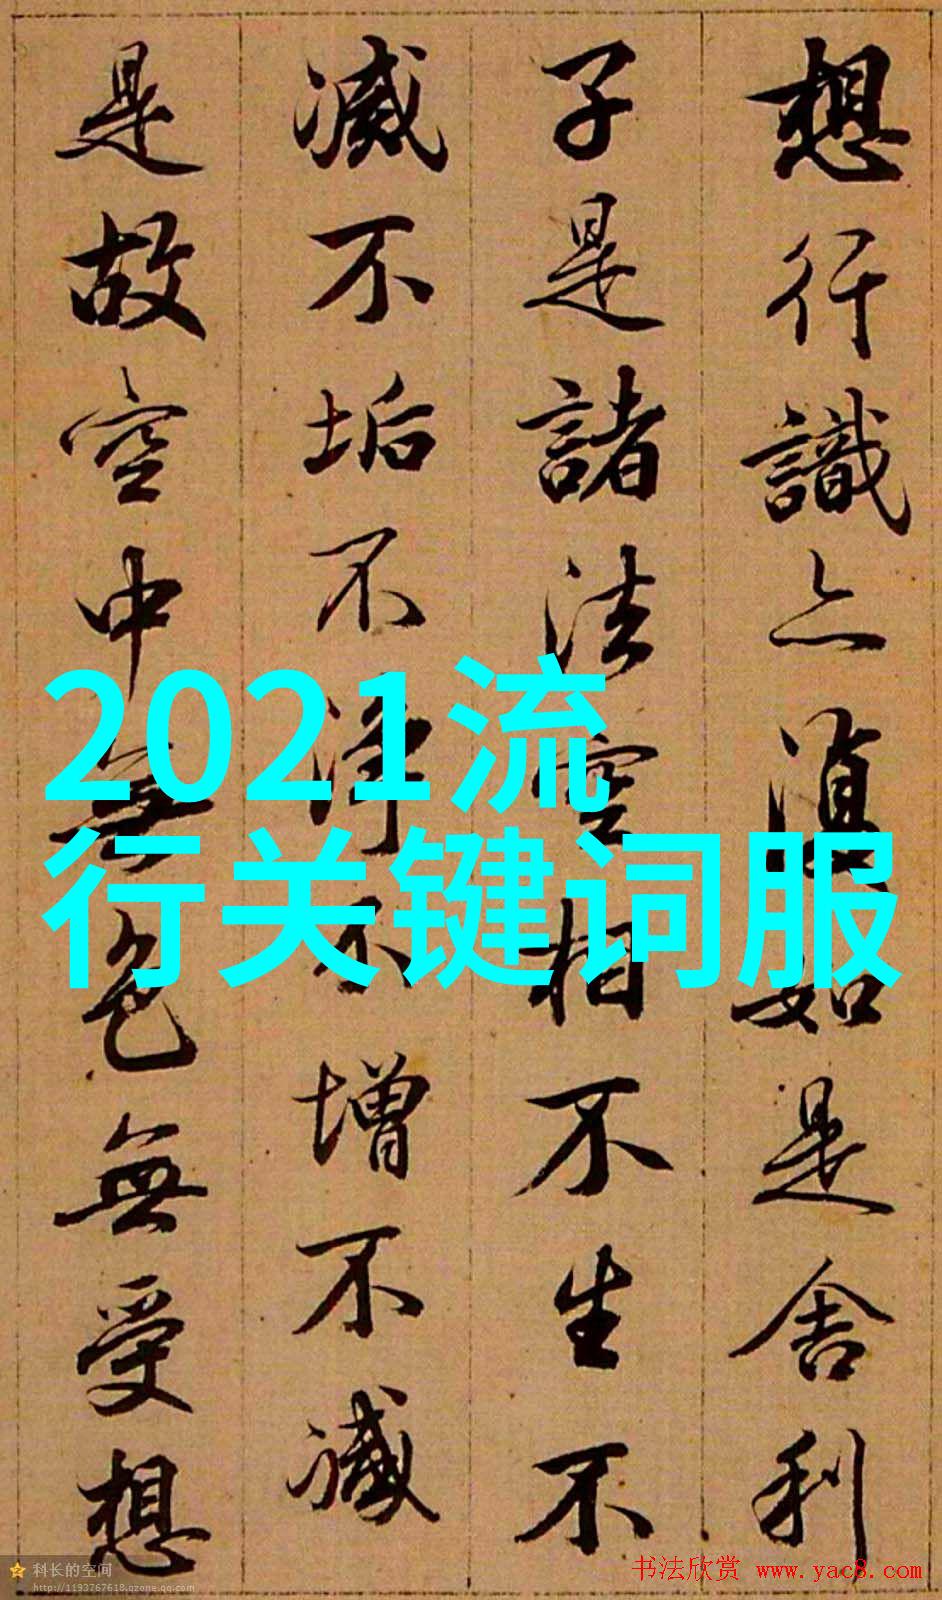 想行識亦復如是舍利
子是諸法空相不生不
滅不垢不淨不增不減
是故空中無色無受想
2021流
行关键词服
科长的空间
http://1193767618.qzone.qq.com
书法欣赏 www.yac8.com